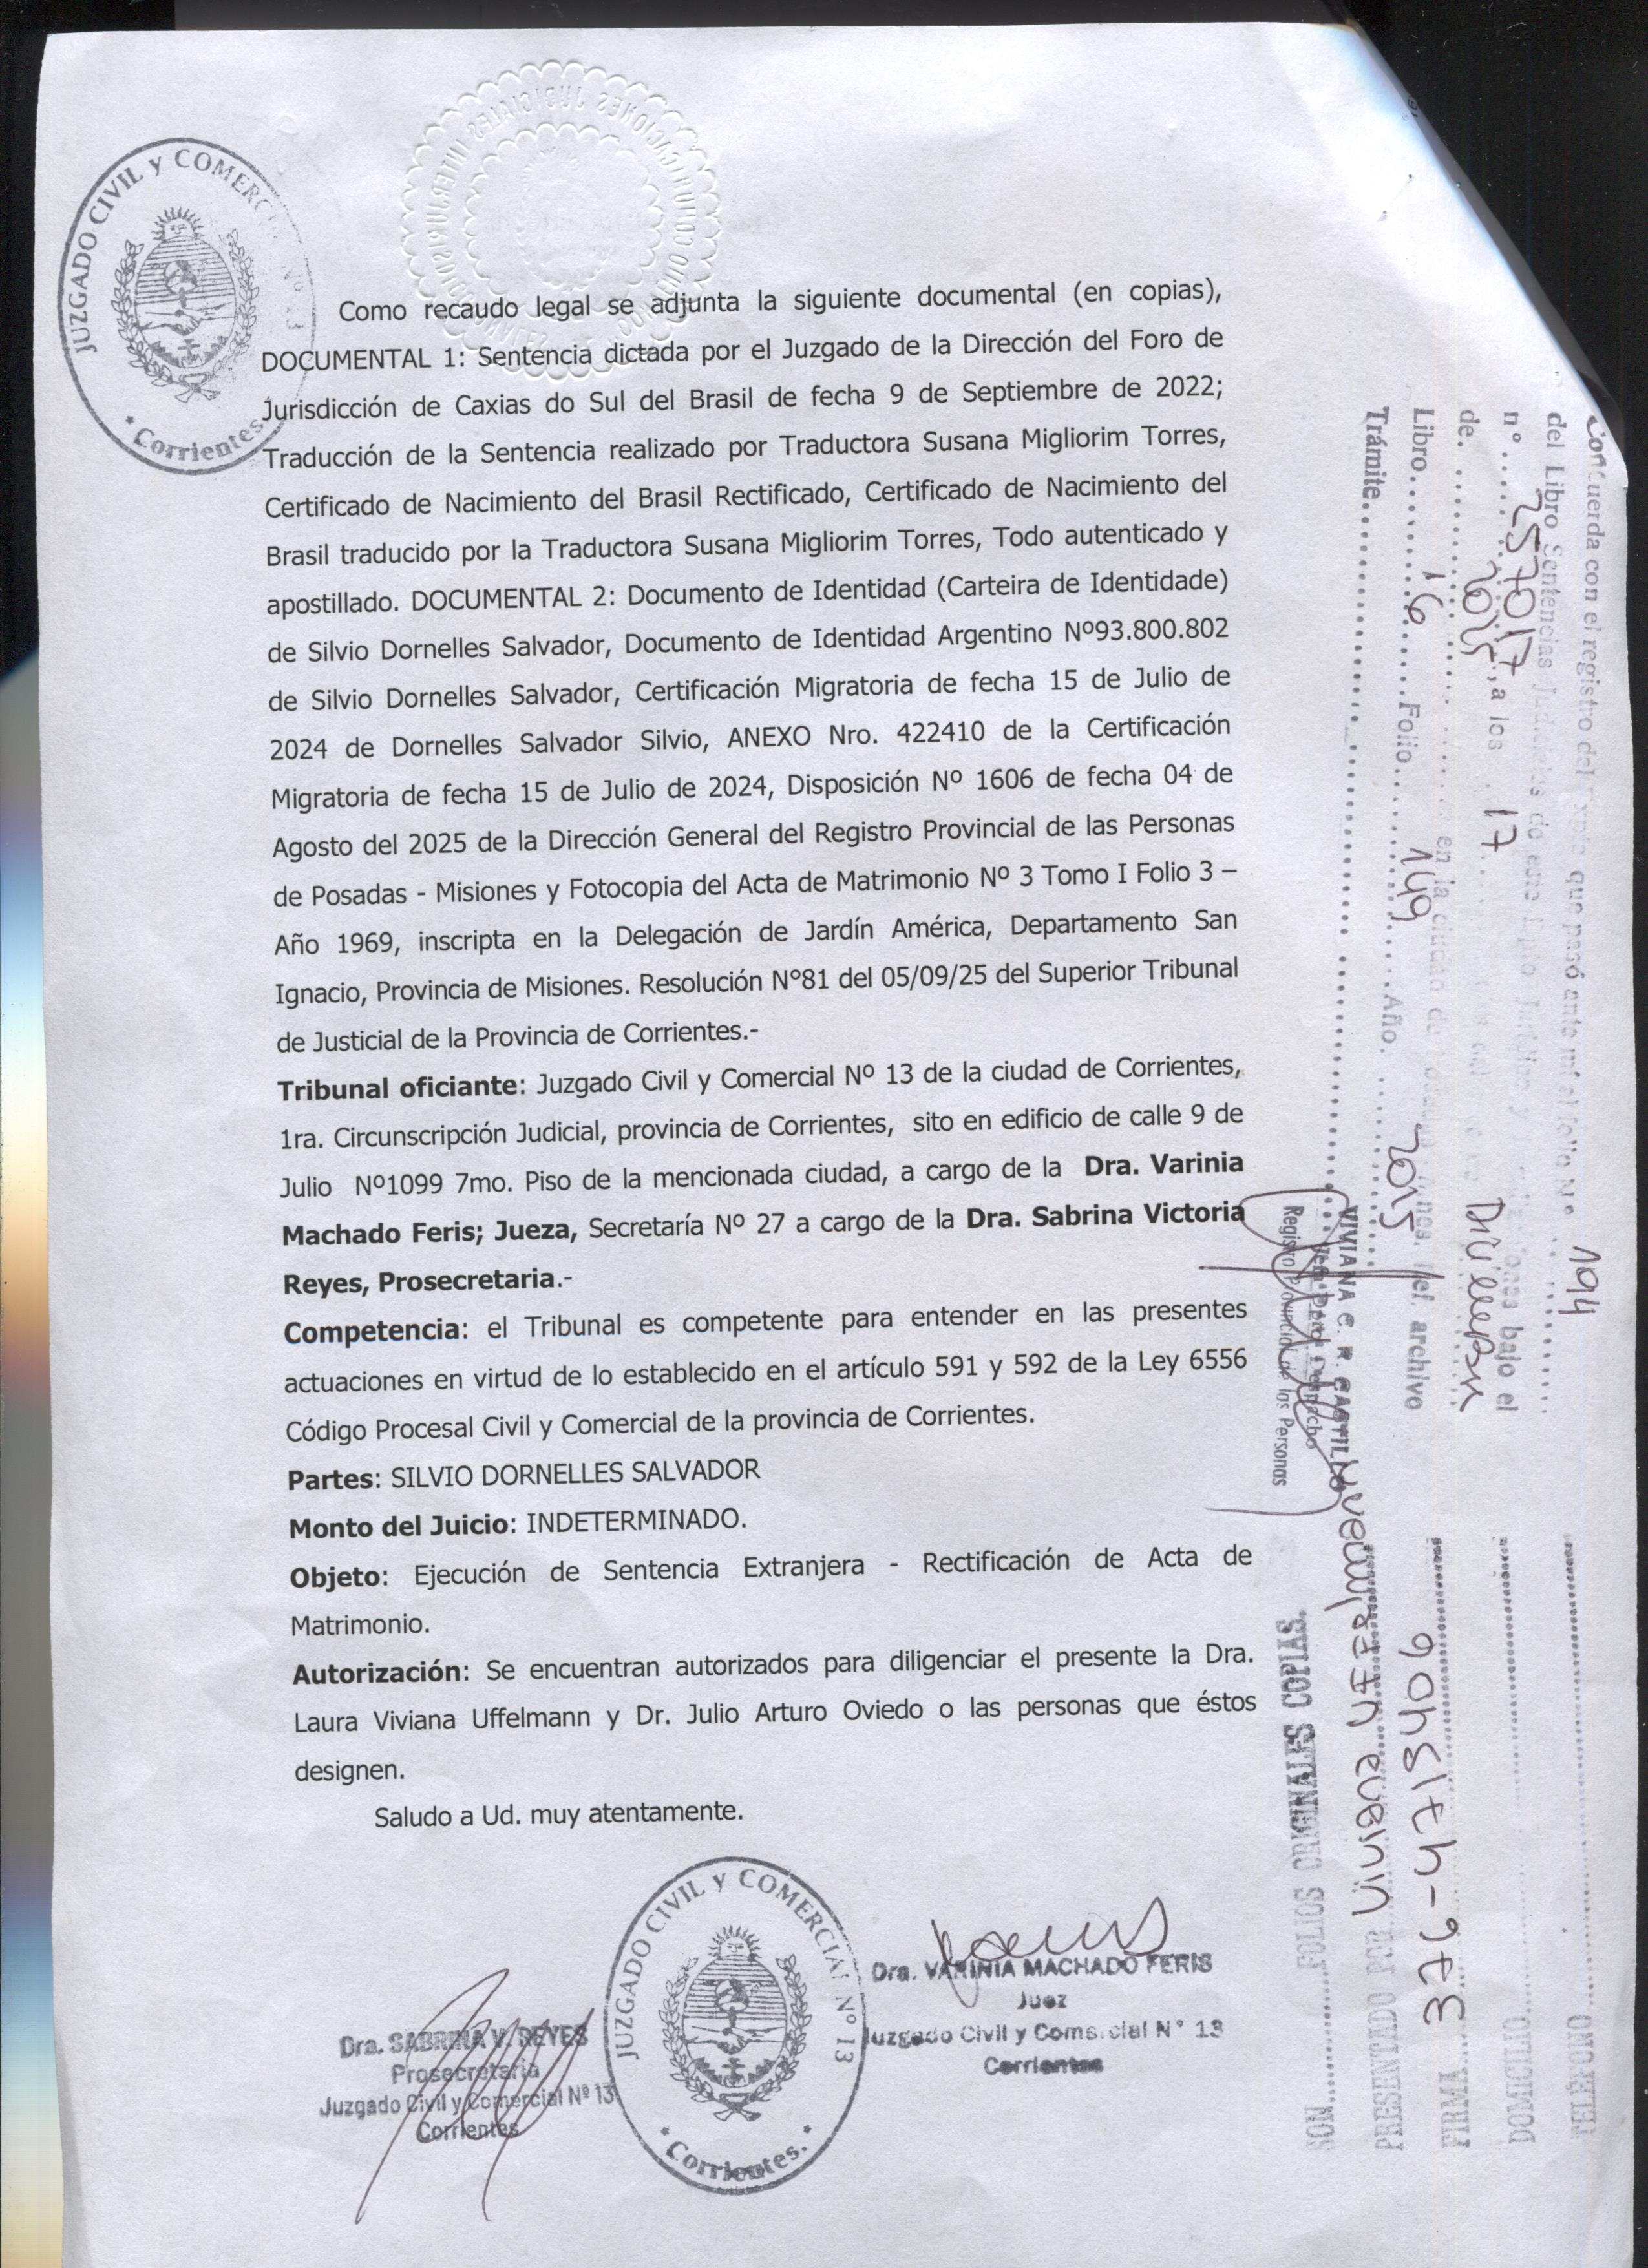 JUZGADO CIVIL y COMERCIAL Nº 13
* Corrientes. *
Como recaudo legal se adjunta la siguiente documental (en copias),
DOCUMENTAL 1: Sentencia dictada por el Juzgado de la Dirección del Foro de
Jurisdicción de Caxias do Sul del Brasil de fecha 9 de Septiembre de 2022;
Traducción de la Sentencia realizado por Traductora Susana Migliorim Torres,
Certificado de Nacimiento del Brasil Rectificado, Certificado de Nacimiento del
Brasil traducido por la Traductora Susana Migliorim Torres, Todo autenticado y
apostillado. DOCUMENTAL 2: Documento de Identidad (Carteira de Identidade)
de Silvio Dornelles Salvador, Documento de Identidad Argentino Nº93.800.802
de Silvio Dornelles Salvador, Certificación Migratoria de fecha 15 de Julio de
2024 de Dornelles Salvador Silvio, ANEXO Nro. 422410 de la Certificación
Migratoria de fecha 15 de Julio de 2024, Disposición Nº 1606 de fecha 04 de
Agosto del 2025 de la Dirección General del Registro Provincial de las Personas
de Posadas - Misiones y Fotocopia del Acta de Matrimonio Nº 3 Tomo I Folio 3 –
Año 1969, inscripta en la Delegación de Jardín América, Departamento San
Ignacio, Provincia de Misiones. Resolución N°81 del 05/09/25 del Superior Tribunal
de Justicial de la Provincia de Corrientes.-
Tribunal oficiante: Juzgado Civil y Comercial Nº 13 de la ciudad de Corrientes,
1ra. Circunscripción Judicial, provincia de Corrientes, sito en edificio de calle 9 de
Julio Nº1099 7mo. Piso de la mencionada ciudad, a cargo de la Dra. Varinia
Machado Feris; Jueza, Secretaría Nº 27 a cargo de la Dra. Sabrina Victoria
Reyes, Prosecretaria.-
Competencia: el Tribunal es competente para entender en las presentes
actuaciones en virtud de lo establecido en el artículo 591 y 592 de la Ley 6556
Código Procesal Civil y Comercial de la provincia de Corrientes.
Partes: SILVIO DORNELLES SALVADOR
Monto del Juicio: INDETERMINADO.
Objeto: Ejecución de Sentencia Extranjera - Rectificación de Acta de
Matrimonio.
Autorización: Se encuentran autorizados para diligenciar el presente la Dra.
Laura Viviana Uffelmann y Dr. Julio Arturo Oviedo o las personas que éstos
designen.
Saludo a Ud. muy atentamente.
Dra. SABRINA V. REYES
Prosecretaria
Juzgado Civil y Comercial Nº 13
Corrientes
JUZGADO CIVIL y COMERCIAL Nº 13
* Corrientes. *
Dra. VARINIA MACHADO FERIS
Juez
Juzgado Civil y Comercial N° 13
Corrientes
Concuerda con el registro del que pasó ante mí al folio Nº 194
del Libro Sentencias bajo el
n° 2570/17, a los 17
de. 2025 en la ciudad de Ref. archivo
Libro 16 Folio 149 Año. 2025
Trámite
VIVIANA C. R. CASTILLO
Jefa Dpto. Despacho
Registro Provincial de las Personas
SON FOLIOS ORIGINALES COPIAS.
PRESENTADO POR
FIRMA
DOMICILIO
TELEFONO